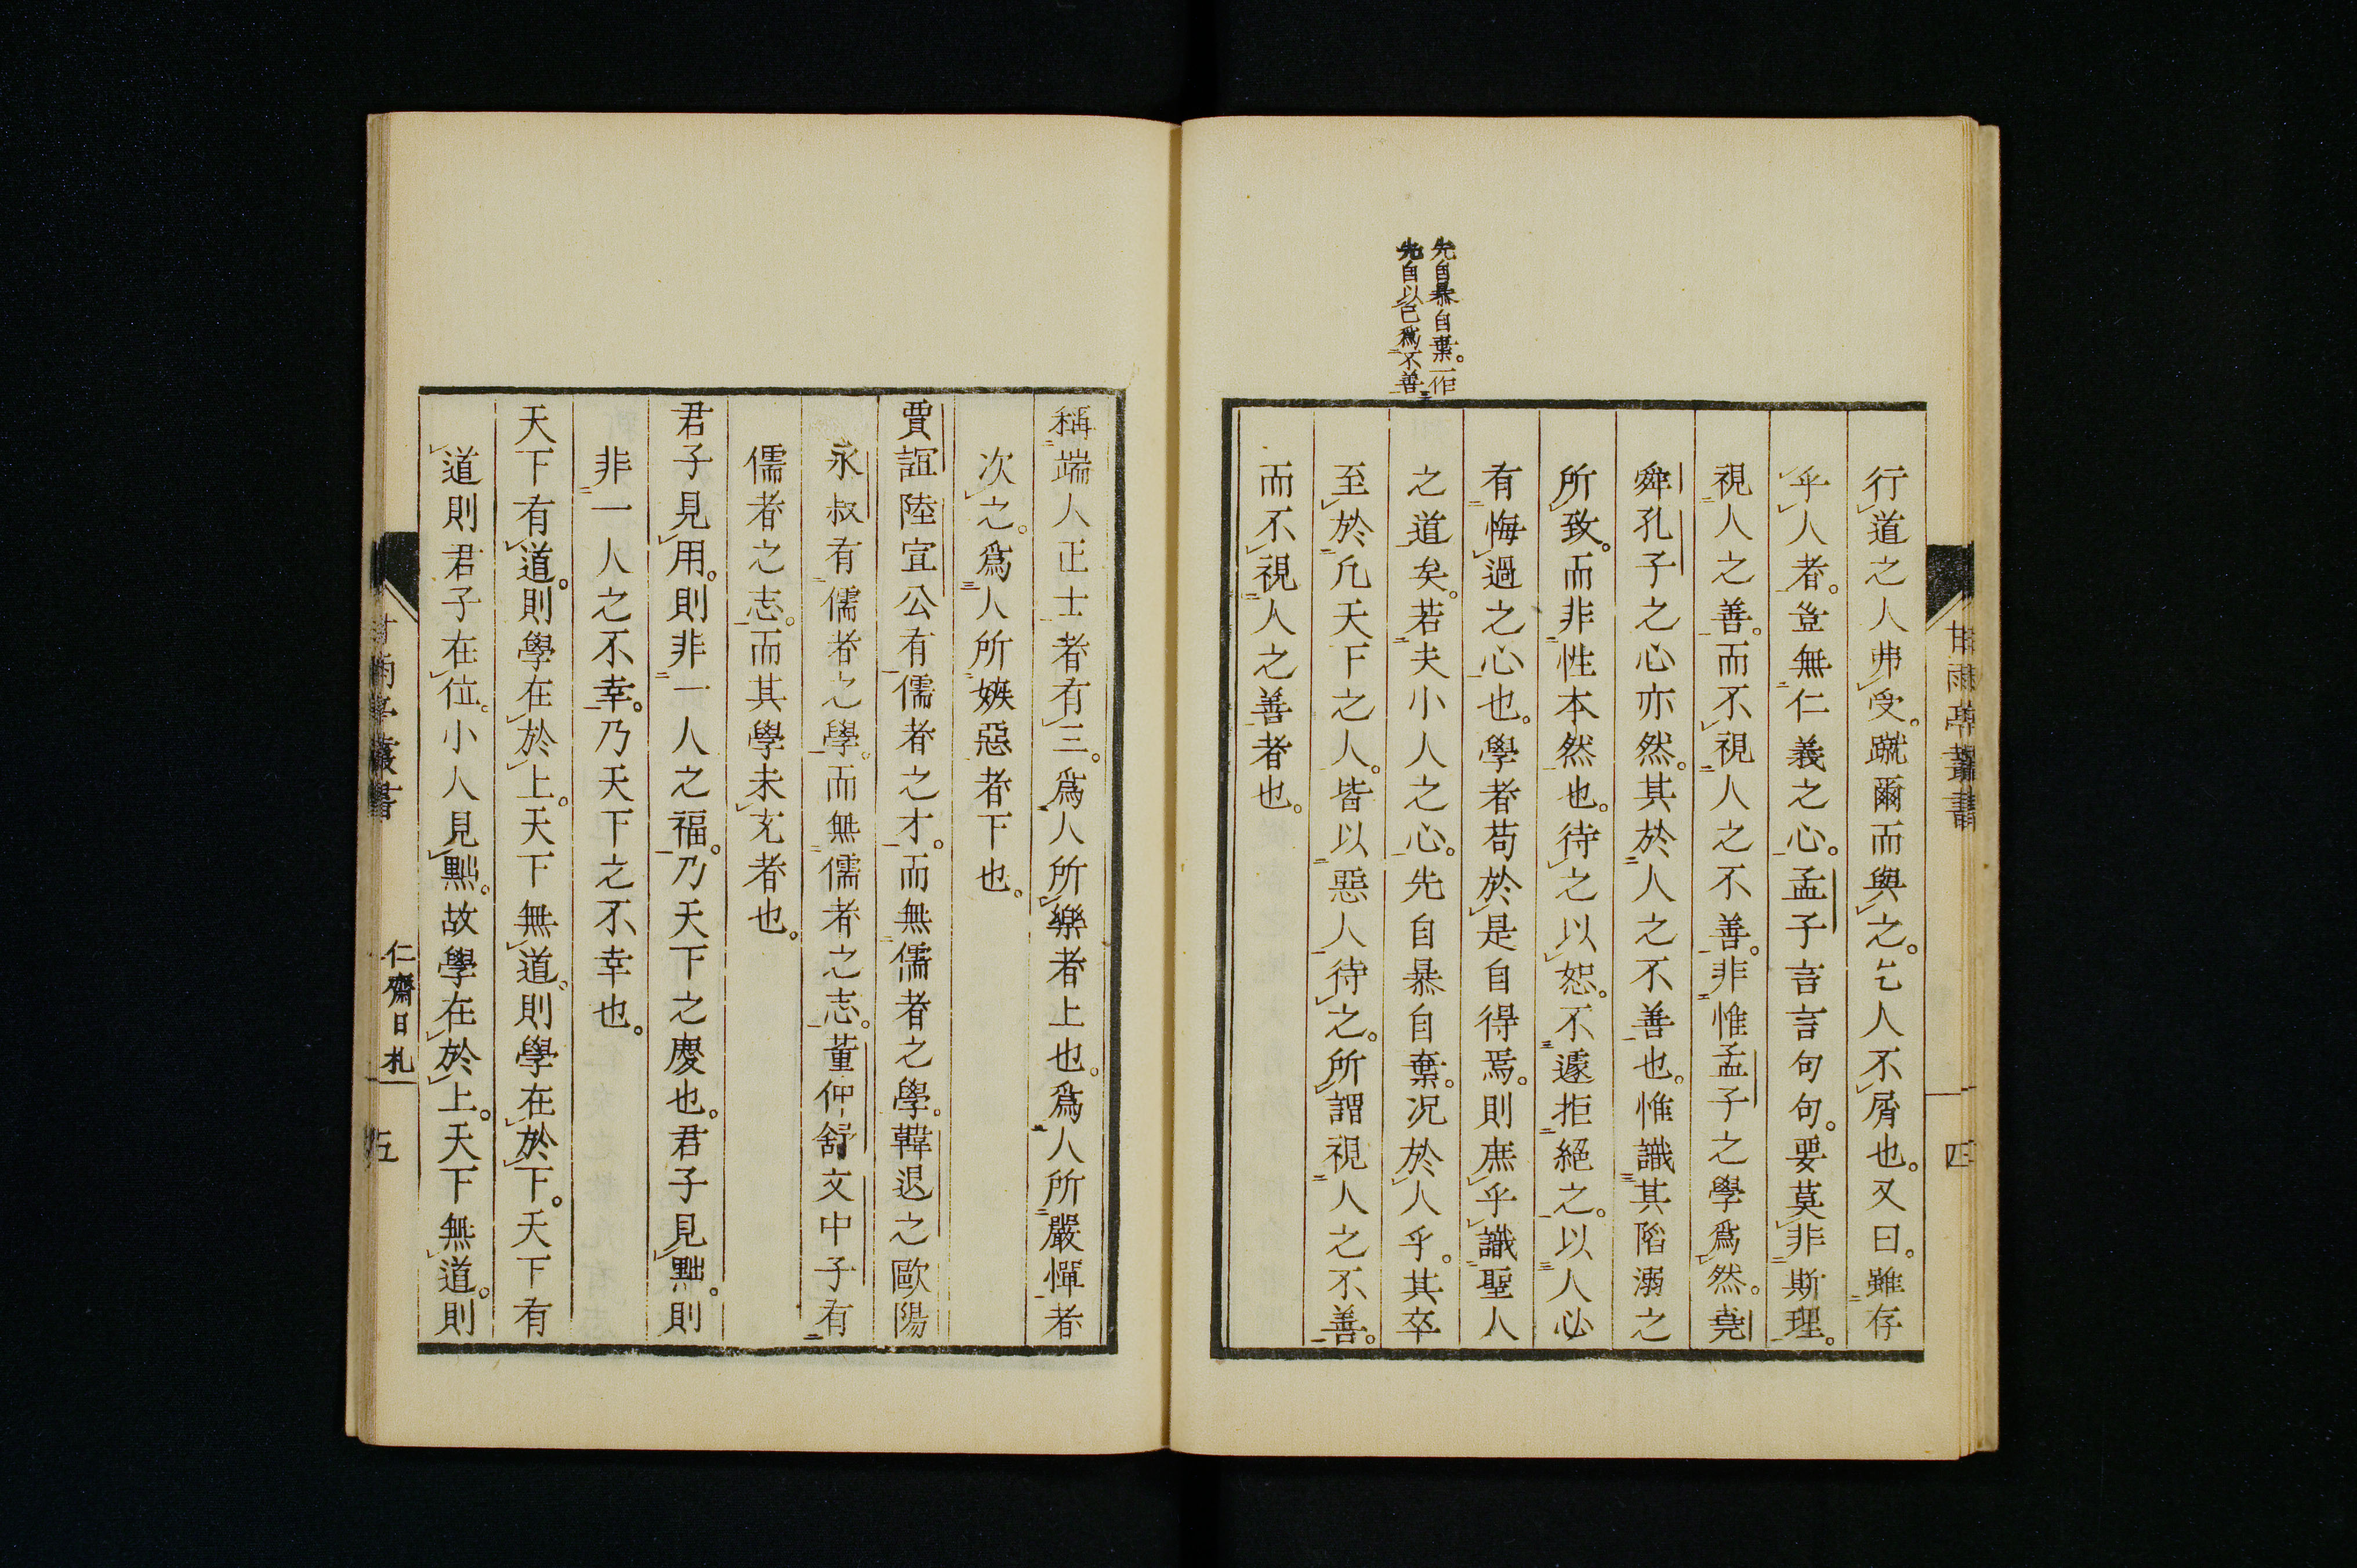 先自暴自棄。一作
先自以己爲不善
行道之人弗受。蹴爾而與之。乞人不屑也。又曰。雖存
乎人者。豈無仁義之心。孟子言言句句。要莫非斯理。
視人之善。而不視人之不善。非惟孟子之學爲然。堯
舜孔子之心亦然。其於人之不善也。惟識其陷溺之
所致。而非性本然也。待之以恕。不遽拒絕之。以人必
有悔過之心也。學者苟於是自得焉。則庶乎識聖人
之道矣。若夫小人之心。先自暴自棄。況於人乎。其卒
至於凡天下之人。皆以惡人待之。所謂視人之不善。
而不視人之善者也。
甘雨亭叢書
四
稱端人正士者有三。爲人所樂者上也。爲人所嚴憚者
次之。爲人所嫉惡者下也。
賈誼陸宣公有儒者之才。而無儒者之學。韓退之歐陽
永叔有儒者之學。而無儒者之志。董仲舒文中子有
儒者之志。而其學未充者也。
君子見用。則非一人之福。乃天下之慶也。君子見黜。則
非一人之不幸。乃天下之不幸也。
天下有道。則學在於上。天下無道。則學在於下。天下有
道則君子在位。小人見黜。故學在於上。天下無道。則
甘雨亭叢書
仁齋日札
五